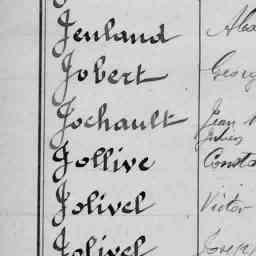 Jenland
Jobert Georg
Jochault Jean
Jules
Jollive Consta
Jolivel Victor
Jolivel Joseph